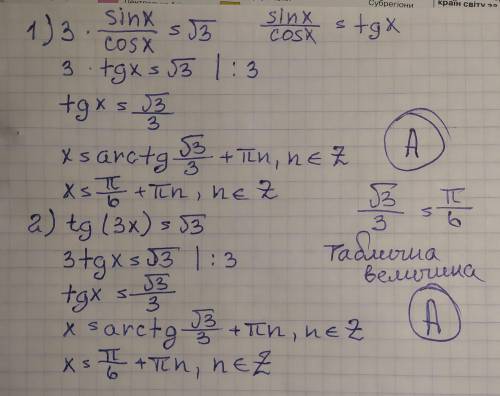 Субрегіони
країн світу
1) 3 · sinx/cosx = √3    sinx/cosx = tgx
3 · tgx = √3 | : 3
tgx = √3/3
x = arctg √3/3 + πn, n ∈ Z
A
x = π/6 + πn, n ∈ Z
√3/3 = π/6
2) tg (3x) = √3
Таблична
величина
3tgx = √3 | : 3
tgx = √3/3
A
x = arctg √3/3 + πn, n ∈ Z
x = π/6 + πn, n ∈ Z